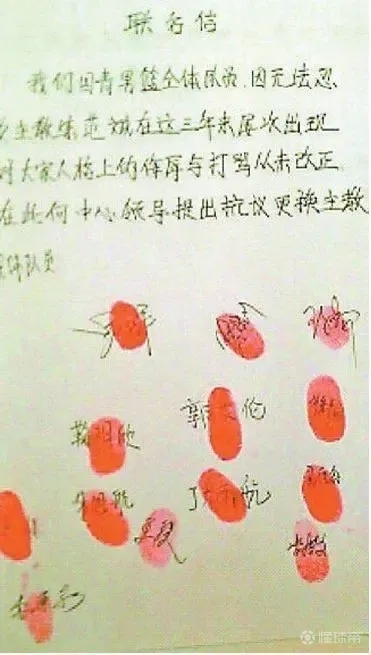 联名信
我们国青男篮全体队员,因无法忍
受主教练范斌在这三年来屡次出现
对大家人格上的侮辱与打骂从未改正
在此向中心领导提出抗议更换主教
全体队员
鞠明欣 郭艾伦
朱旭航
懂球帝